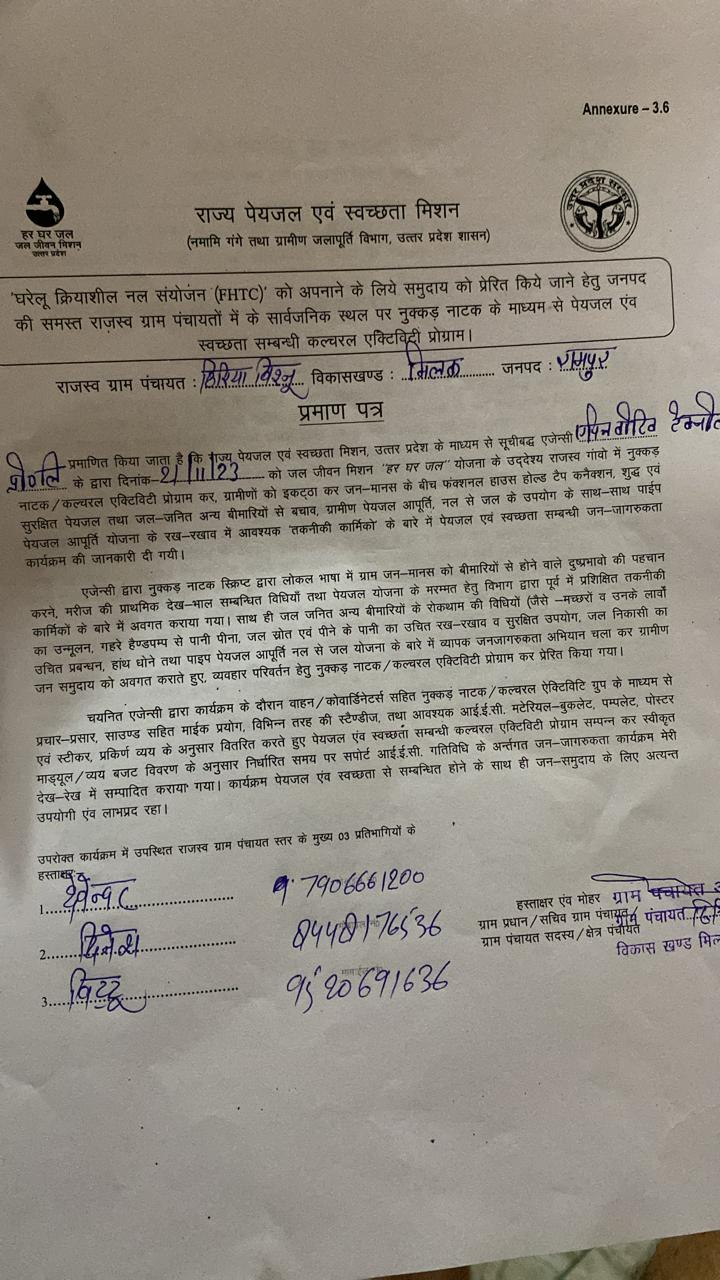 Annexure – 3.6
हर घर जल
जल जीवन मिशन
उत्तर प्रदेश
राज्य पेयजल एवं स्वच्छता मिशन
(नमामि गंगे तथा ग्रामीण जलापूर्ति विभाग, उत्तर प्रदेश शासन)
उत्तर प्रदेश सरकार
'घरेलू क्रियाशील नल संयोजन (FHTC)' को अपनाने के लिये समुदाय को प्रेरित किये जाने हेतु जनपद
की समस्त राजस्व ग्राम पंचायतों में के सार्वजनिक स्थल पर नुक्कड़ नाटक के माध्यम से पेयजल एंव
स्वच्छता सम्बन्धी कल्चरल एक्टिविटी प्रोग्राम।
राजस्व ग्राम पंचायत : विकासखण्ड : मिलक जनपद : रामपुर
प्रमाण पत्र
प्रमाणित किया जाता है कि राज्य पेयजल एवं स्वच्छता मिशन, उत्तर प्रदेश के माध्यम से सूचीबद्ध एजेन्सी
प्रा०लि के द्वारा दिनांक-21/11/23 को जल जीवन मिशन 'हर घर जल' योजना के उद्देश्य राजस्व गांवो में नुक्कड़
नाटक/कल्चरल एक्टिविटी प्रोग्राम कर, ग्रामीणों को इकट्ठा कर जन-मानस के बीच फंक्शनल हाउस होल्ड टैप कनैक्शन, शुद्ध एवं
सुरक्षित पेयजल तथा जल-जनित अन्य बीमारियों से बचाव, ग्रामीण पेयजल आपूर्ति, नल से जल के उपयोग के साथ-साथ पाईप
पेयजल आपूर्ति योजना के रख-रखाव में आवश्यक 'तकनीकी कार्मिको' के बारे में पेयजल एवं स्वच्छता सम्बन्धी जन-जागरुकता
कार्यक्रम की जानकारी दी गयी।
एजेन्सी द्वारा नुक्कड़ नाटक स्क्रिप्ट द्वारा लोकल भाषा में ग्राम जन-मानस को बीमारियों से होने वाले दुष्प्रभावो की पहचान
करने, मरीज की प्राथमिक देख-भाल सम्बन्धित विधियाँ तथा पेयजल योजना के मरम्मत हेतु विभाग द्वारा पूर्व में प्रशिक्षित तकनीकी
कार्मिकों के बारे में अवगत कराया गया। साथ ही जल जनित अन्य बीमारियों के रोकथाम की विधियों (जैसे -मच्छरों व उनके लार्वो
का उन्मूलन, गहरे हैण्डपम्प से पानी पीना, जल स्रोत एवं पीने के पानी का उचित रख-रखाव व सुरक्षित उपयोग, जल निकासी का
उचित प्रबन्धन, हांथ धोने तथा पाइप पेयजल आपूर्ति नल से जल योजना के बारे में व्यापक जनजागरुकता अभियान चला कर ग्रामीण
जन समुदाय को अवगत कराते हुए, व्यवहार परिवर्तन हेतु नुक्कड़ नाटक/कल्चरल एक्टिविटी प्रोग्राम कर प्रेरित किया गया।
चयनित एजेन्सी द्वारा कार्यक्रम के दौरान वाहन/कोवार्डिनेटर्स सहित नुक्कड़ नाटक/कल्चरल ऐक्टिविटि ग्रुप के माध्यम से
प्रचार-प्रसार, साउण्ड सहित माईक प्रयोग, विभिन्न तरह की स्टैण्डीज, तथा आवश्यक आई.ई.सी. मटेरियल-बुकलेट, पम्पलेट, पोस्टर
एवं स्टीकर, प्रकिर्ण व्यय के अनुसार वितरित करते हुए पेयजल एंव स्वच्छता सम्बन्धी कल्चरल एक्टिविटी प्रोग्राम सम्पन्न कर स्वीकृत
माड्यूल/व्यय बजट विवरण के अनुसार निर्धारित समय पर सपोर्ट आई.ई.सी. गतिविधि के अर्न्तगत जन-जागरुकता कार्यक्रम मेरी
देख-रेख में सम्पादित कराया गया। कार्यक्रम पेयजल एंव स्वच्छता से सम्बन्धित होने के साथ ही जन-समुदाय के लिए अत्यन्त
उपयोगी एंव लाभप्रद रहा।
उपरोक्त कार्यक्रम में उपस्थित राजस्व ग्राम पंचायत स्तर के मुख्य 03 प्रतिभागियों के
हस्ताक्षर
1. 7906661200
2. दिनेश 8448176536
3. बिट्टू 9520691636
हस्ताक्षर एंव मोहर ग्राम पंचायत
ग्राम प्रधान/सचिव ग्राम पंचायत/ ग्राम पंचायत
ग्राम पंचायत सदस्य/क्षेत्र पंचायत
विकास खण्ड